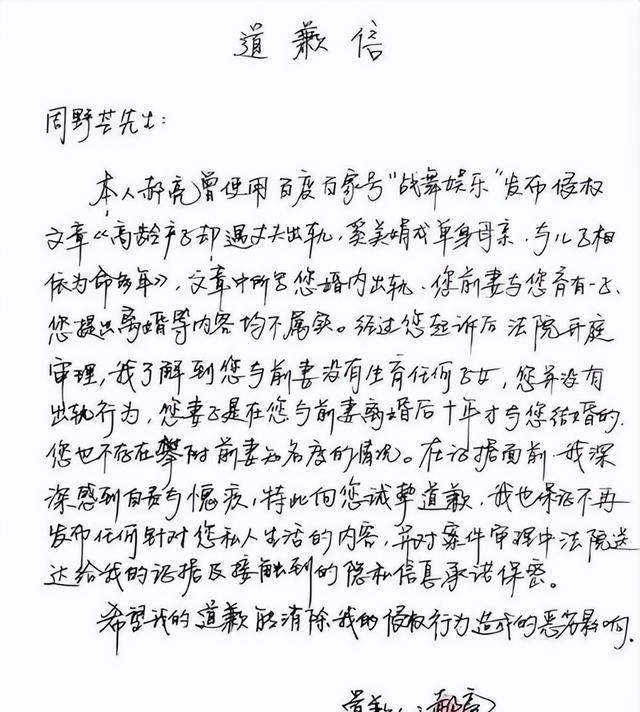 道歉信
周野芒先生:
本人郝亮曾使用百度百家号“战舞娱乐”发布侵权
文章《高龄产子却遇丈夫出轨,奚美娟成单身母亲,与儿子相
依为命多年》,文章中所写您婚内出轨、您前妻与您育有一子、
您提出离婚等内容均不属实。经过您起诉后法院开庭
审理,我了解到您与前妻没有生育任何子女,您并没有
出轨行为,您妻子是在您与前妻离婚后十年才与您结婚的,
您也不存在攀附前妻知名度的情况。在证据面前,我深
深感到自责与愧疚,特此向您诚挚道歉,我也保证不再
发布任何针对您私人生活的内容,并对案件审理中法院送
达给我的证据及接触到的隐私信息承诺保密。
希望我的道歉能消除我的侵权行为造成的恶劣影响。
道歉人:郝亮